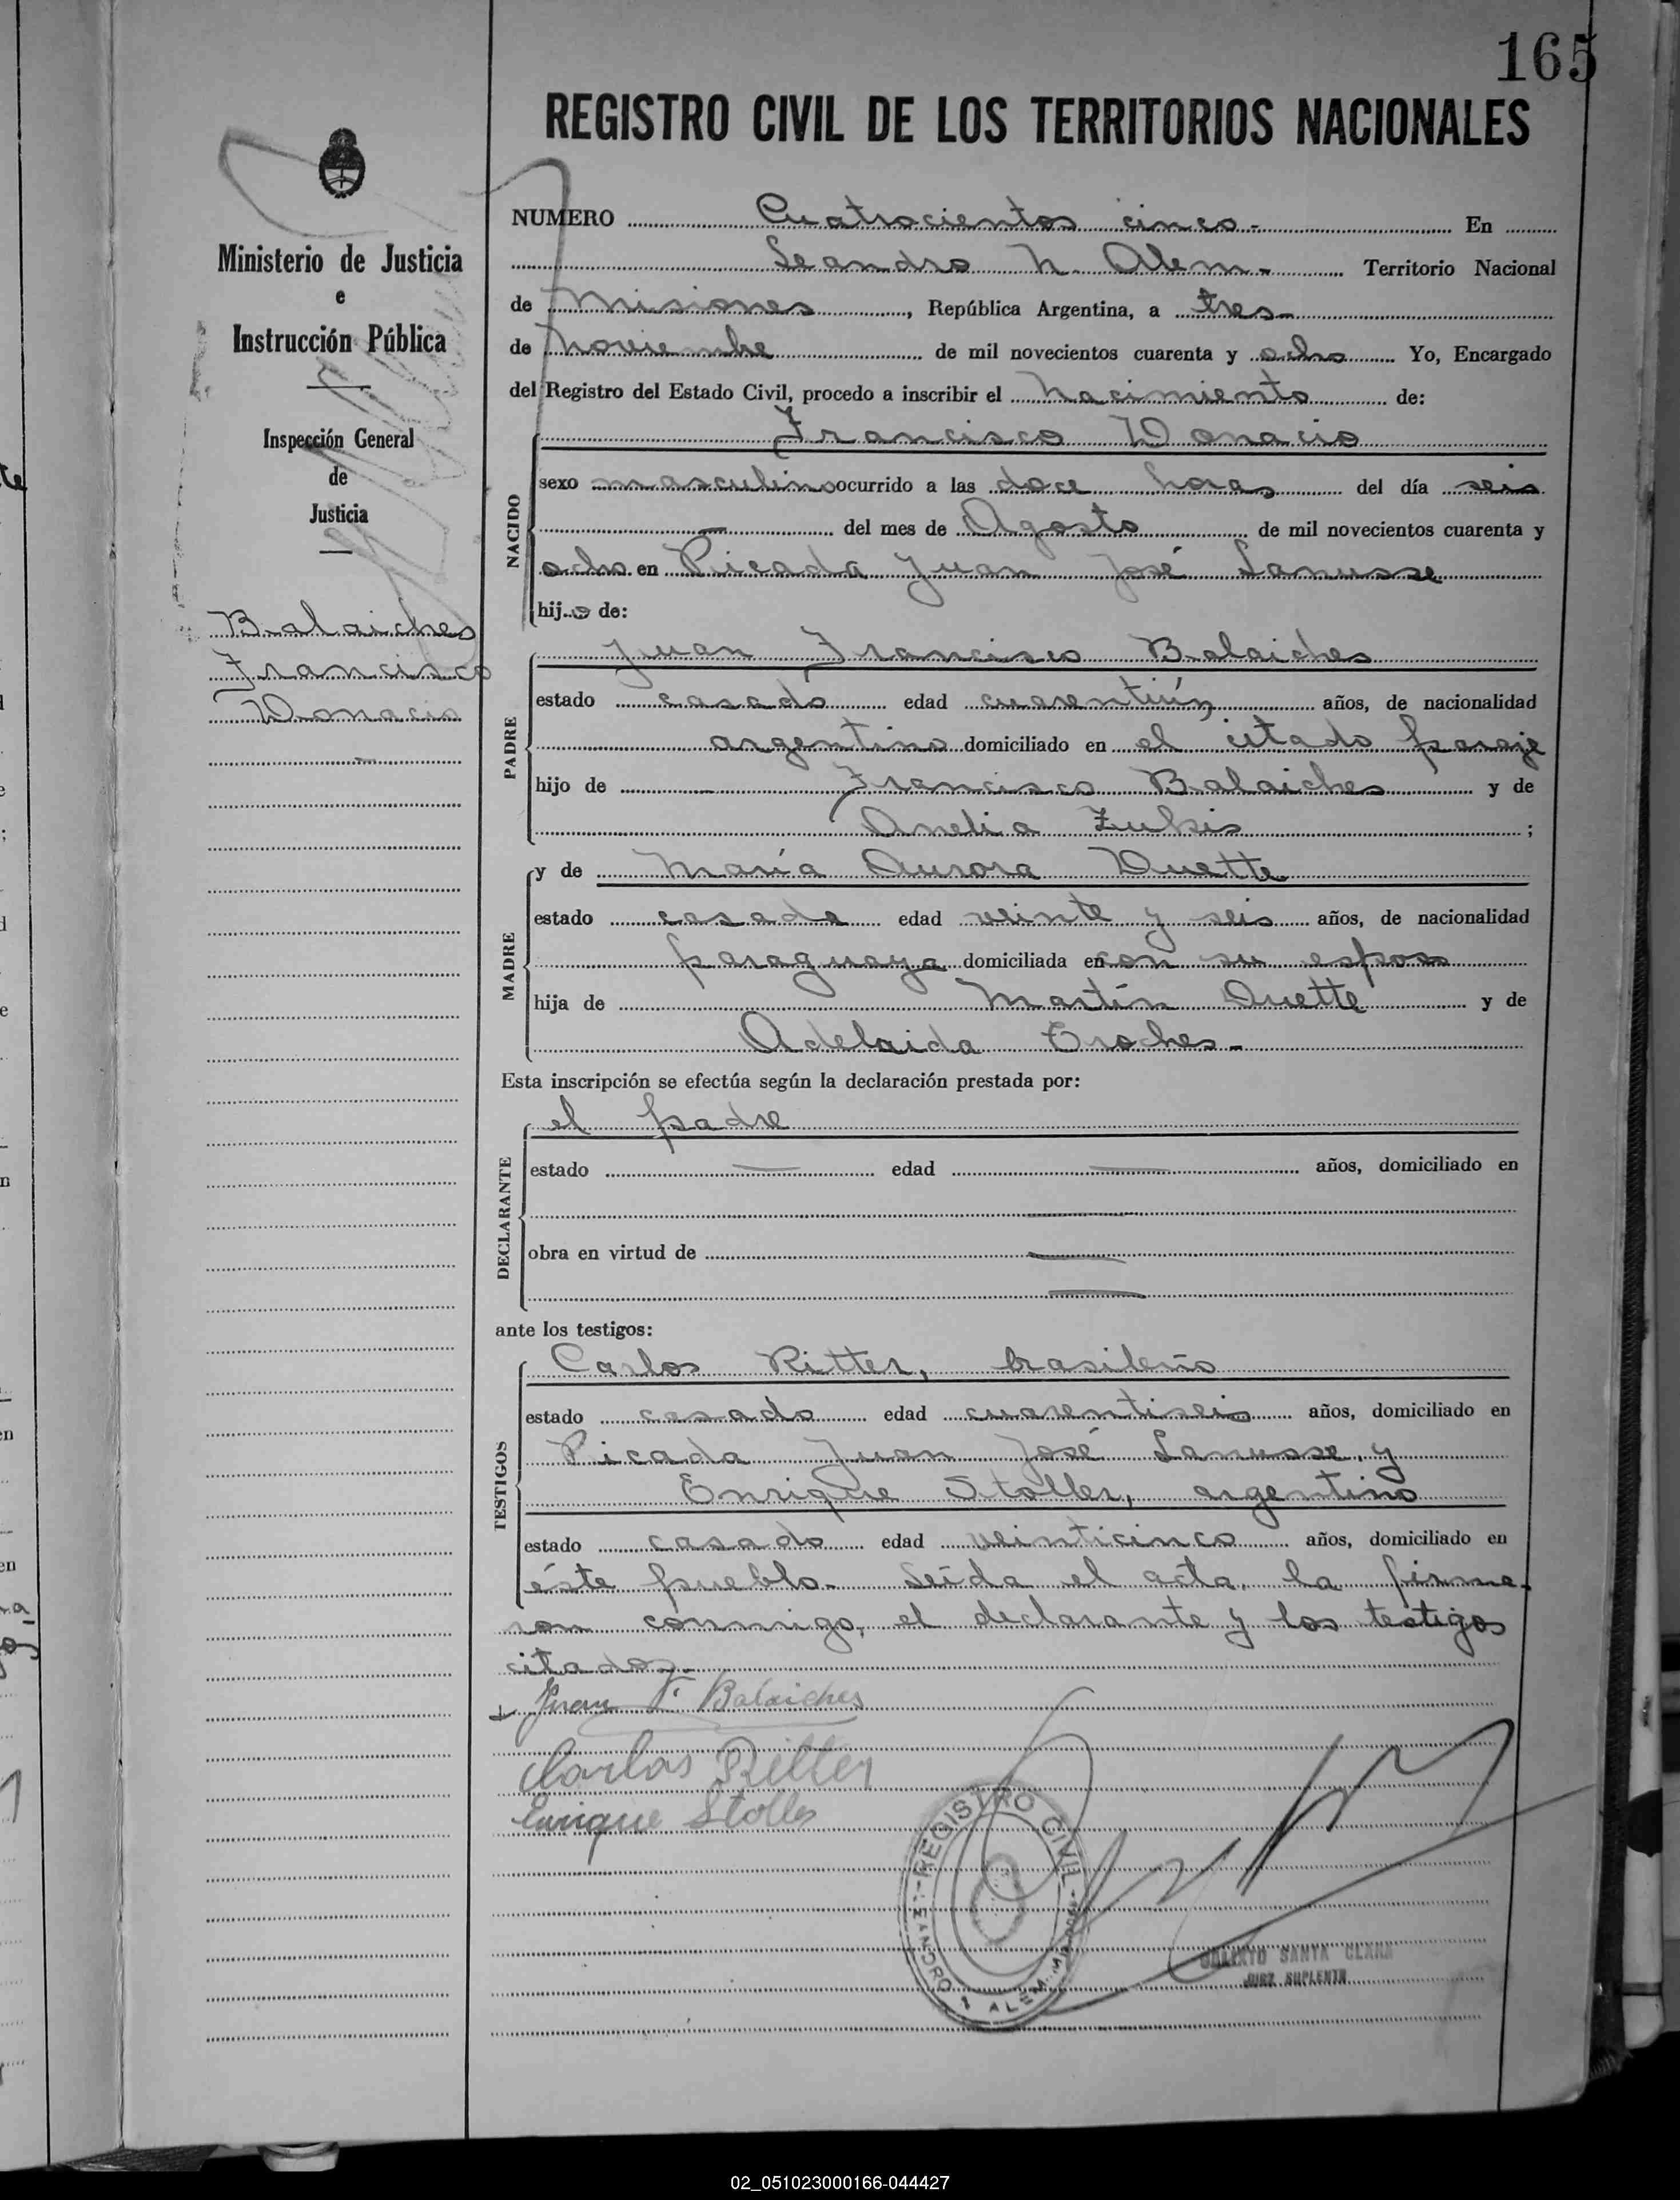 165
REGISTRO CIVIL DE LOS TERRITORIOS NACIONALES
Ministerio de Justicia
e
Instrucción Pública
Inspección General
de
Justicia
Balaiches
Francisco
Donacio
NUMERO Cuatrocientos cinco.- En
Leandro N. Alem.- Territorio Nacional
de Misiones, República Argentina, a tres-
de Noviembre de mil novecientos cuarenta y ocho Yo, Encargado
del Registro del Estado Civil, procedo a inscribir el Nacimiento de:
NACIDO
Francisco Donacio
sexo masculino ocurrido a las doce horas del día seis
— del mes de Agosto de mil novecientos cuarenta y
ocho en Picada Juan José Lanusse
hijo de:
PADRE
Juan Francisco Balaiches
estado casado edad cuarentiún años, de nacionalidad
argentino domiciliado en el citado paraje
hijo de Francisco Balaiches y de
Anelia Zukis ;
MADRE
y de María Aurora Duette
estado casada edad veinte y seis años, de nacionalidad
paraguaya domiciliada en con su esposo
hija de Martín Duette y de
Adelaida Eroches.-
Esta inscripción se efectúa según la declaración prestada por:
DECLARANTE
el padre
estado — edad — años, domiciliado en
—
obra en virtud de —
—
ante los testigos:
TESTIGOS
Carlos Ritter, brasileño
estado casado edad cuarentiseis años, domiciliado en
Picada Juan José Lanusse, y
Enrique Stoller, argentino
estado casado edad veinticinco años, domiciliado en
éste pueblo.- Leída el acta, la firma-
ron conmigo, el declarante y los testigos
citados.-
Juan F. Balaiches
Carlos Ritter
Enrique Stoller
REGISTRO CIVIL
LEANDRO N. ALEM
SANTA CLARA
JUEZ SUPLENTE
02_051023000166-044427